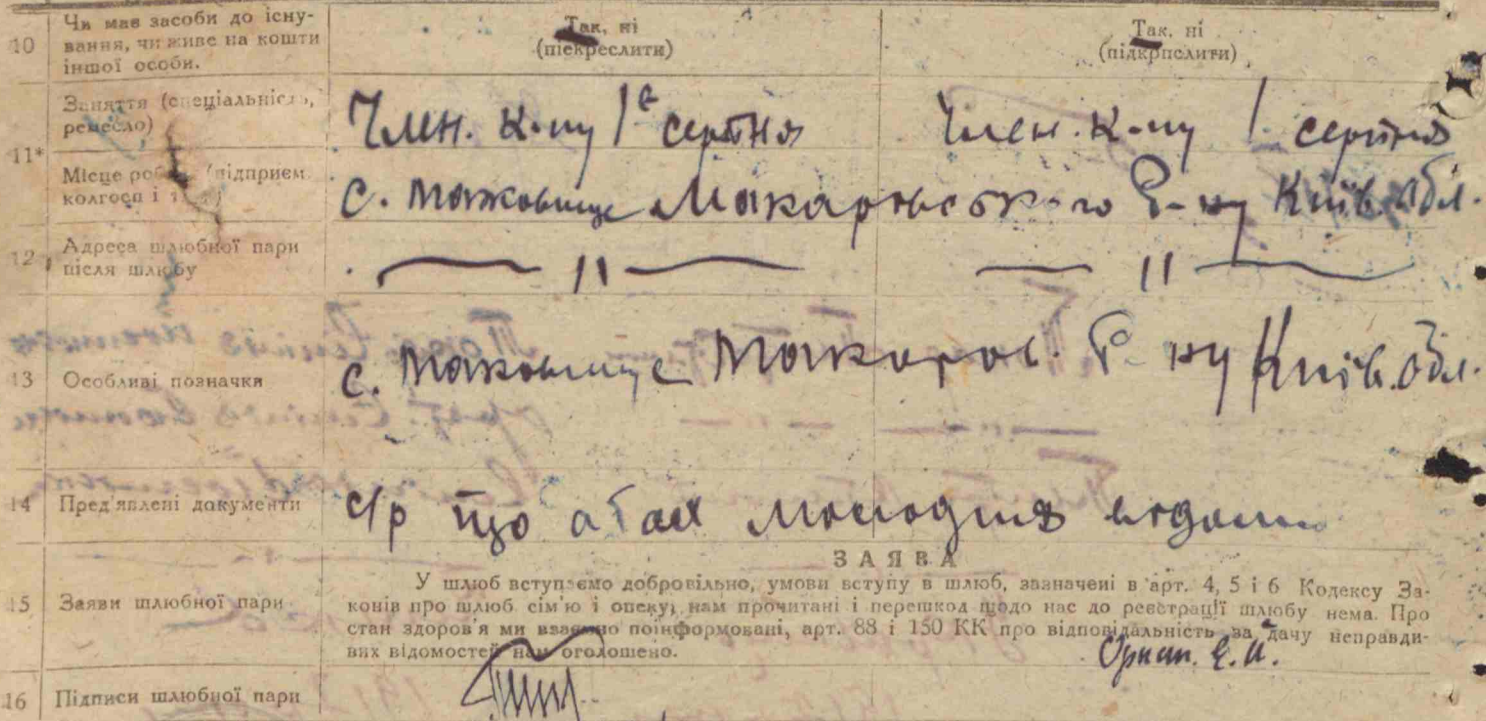 10 Чи має засоби до існу-
вання, чи живе на кошти
іншої особи.
Так, ні
(підкреслити)
Так, ні
(підкрислити)
11* Заняття (спеціальність,
ремесло)
Член. к-пу 1е серпня
Член. к-пу 1 серпня
Місце роботи (підприєм.
колгосп і т. д.)
с. Маковище Макарівського Р-ну Київ. обл.
12 Адреса шлюбної пари
після шлюбу
— 11 — — 11 —
13 Особливі позначки
с. Маковище Макаров. Р-ну Київ. обл.
14 Пред'явлені документи
с/р що
15 Заяви шлюбної пари
ЗАЯВА
У шлюб вступаємо добровільно, умови вступу в шлюб, зазначені в арт. 4, 5 і 6 Кодексу За-
конів про шлюб сім'ю і опеку, нам прочитані і перешкод щодо нас до реєстрації шлюбу нема. Про
стан здоров'я ми взаємно поінформовані, арт. 88 і 150 КК про відповідальність за дачу неправди-
вих відомостей нам оголошено.
16 Підписи шлюбної пари